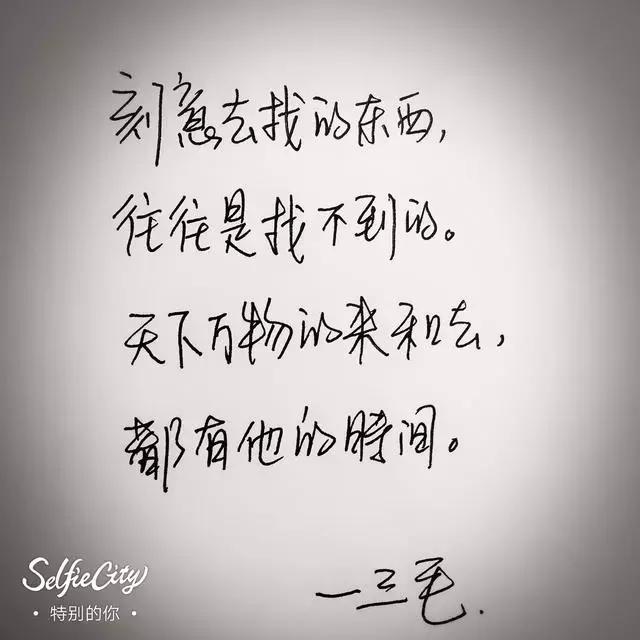 刻意去找的东西,
往往是找不到的。
天下万物的来和去,
都有他的時间。
—三毛.
SelfieCity
· 特别的你 ·